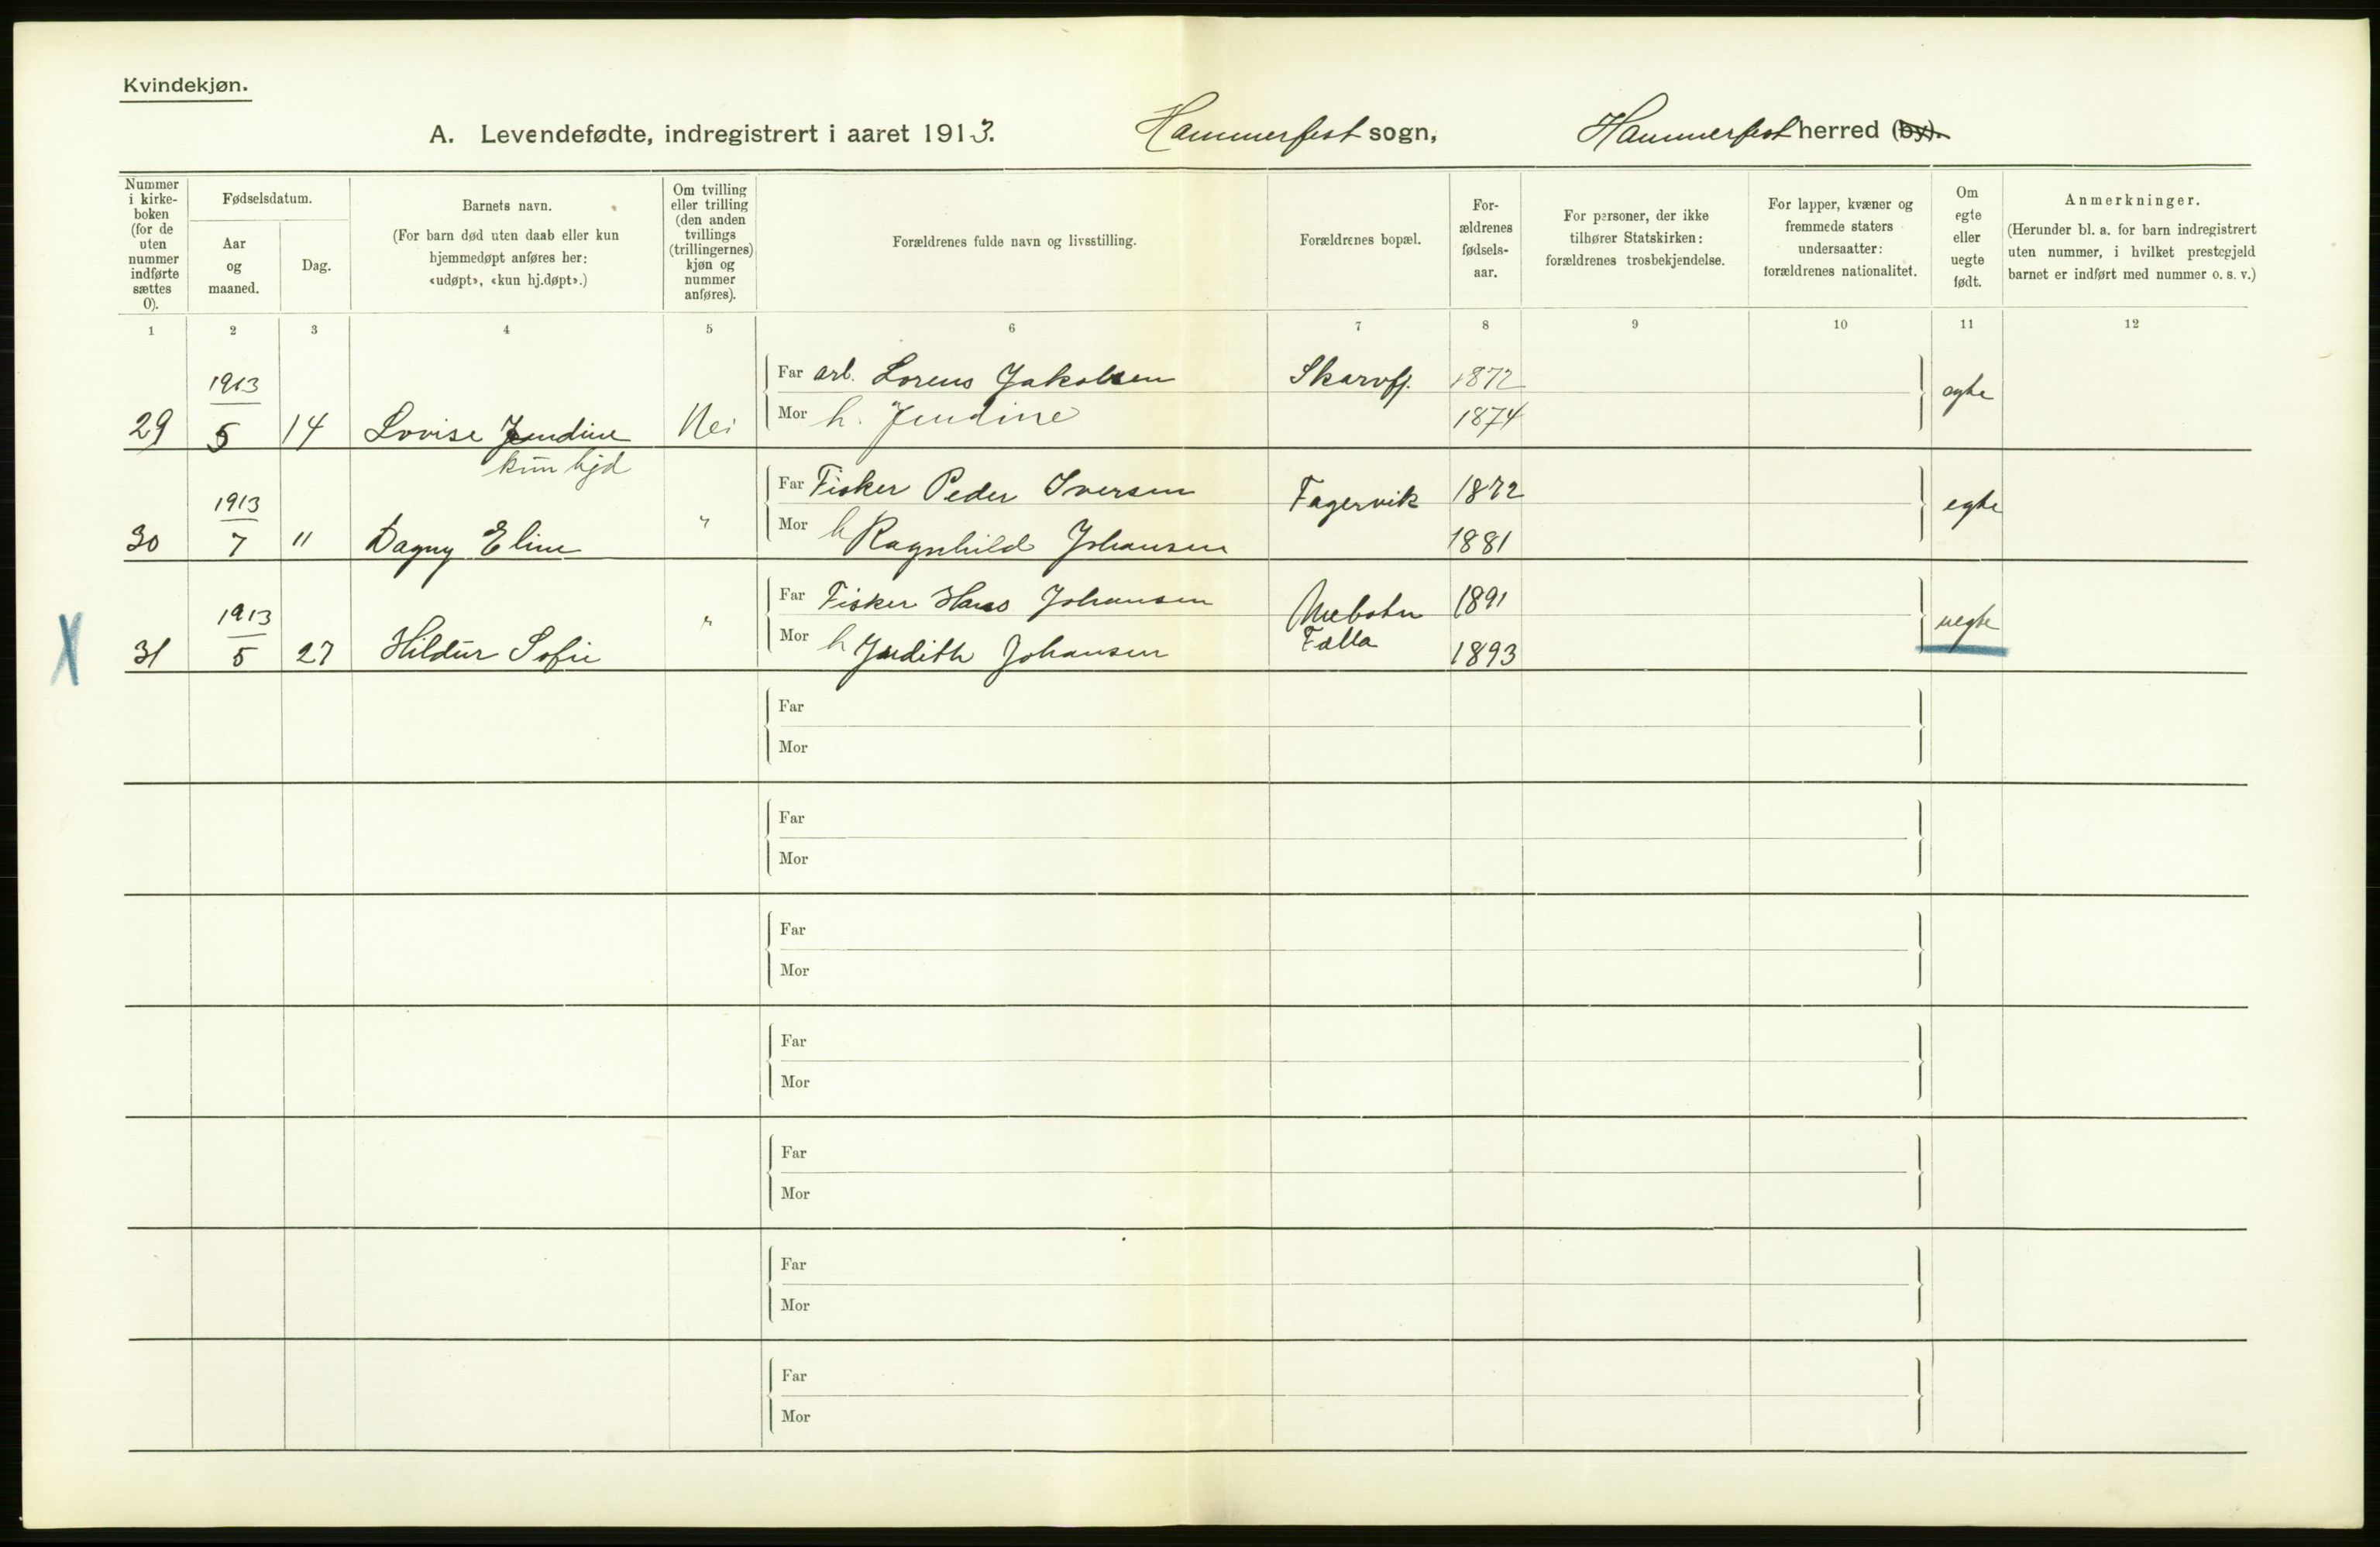 Kvindekjøn.
A. Levendefødte, indregistrert i aaret 1913. Hammerfest sogn, Hammerfest herred (by).
Nummer i kirke-boken (for de uten nummer indførte sættes 0).
Fødselsdatum.
Aar og maaned.
Dag.
Barnets navn.
(For barn død uten daab eller kun hjemmedøpt anføres her: «udøpt», «kun hj.døpt».)
Om tvilling eller trilling (den anden tvillings (trillingernes) kjøn og nummer anføres).
Forældrenes fulde navn og livsstilling.
Forældrenes bopæl.
For-ældrenes fødsels-aar.
For personer, der ikke tilhører Statskirken: forældrenes trosbekjendelse.
For lapper, kvæner og fremmede staters undersaatter: forældrenes nationalitet.
Om egte eller uegte født.
Anmerkninger.
(Herunder bl. a. for barn indregistrert uten nummer, i hvilket prestegjeld barnet er indført med nummer o. s. v.)
1 2 3 4 5 6 7 8 9 10 11 12
1913 Far arb. Lorens Jakobsen Skarvfj. 1872 egte
29 5 14 Lovise Jendine Nei Mor h. Jendine 1874
kun hjd
1913 Far Fisker Peder Iversen Fagervik 1872 egte
30 7 11 Dagny Eline " Mor h Ragnhild Johansen 1881
1913 Far Fisker Hans Johansen 1891 uegte
31 5 27 Hildur Sofie " Mor h Judith Johansen Falla 1893
Far
Mor
Far
Mor
Far
Mor
Far
Mor
Far
Mor
Far
Mor
Far
Mor